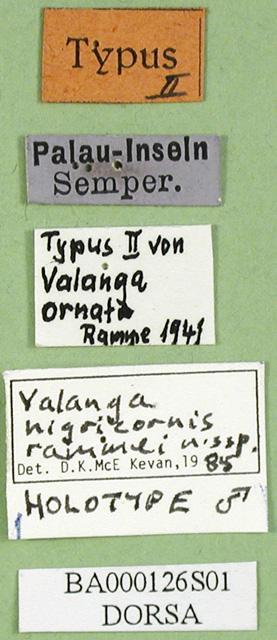 Typus
II
Palau-Inseln
Semper.
Typus II von
Valanga
ornata
Ramme 1941
Valanga
nigricornis
rammei n.ssp.
Det. D.K.McE Kevan, 19 85
HOLOTYPE ♂
BA000126S01
DORSA